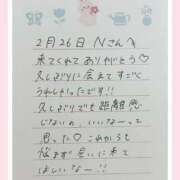 2月26日 Nさんへ
来てくれてありがとう♡
久しぶりに会えてすごく
うれしかったです!!
久しぶりでも距離感
じないの、いいなーって
思った♡これからも
悩まず会いに来て
ほしいなー!!